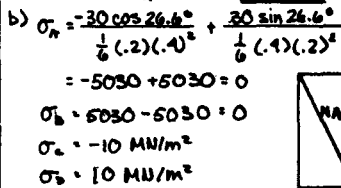 b) σA = -30 cos 26.6° / ⅙(.2)(.4)² + 30 sin 26.6° / ⅙(.4)(.2)²
= -5030 + 5030 = 0
σb = 5030 - 5030 = 0
σc = -10 MN/m²
σD = 10 MN/m²
NA